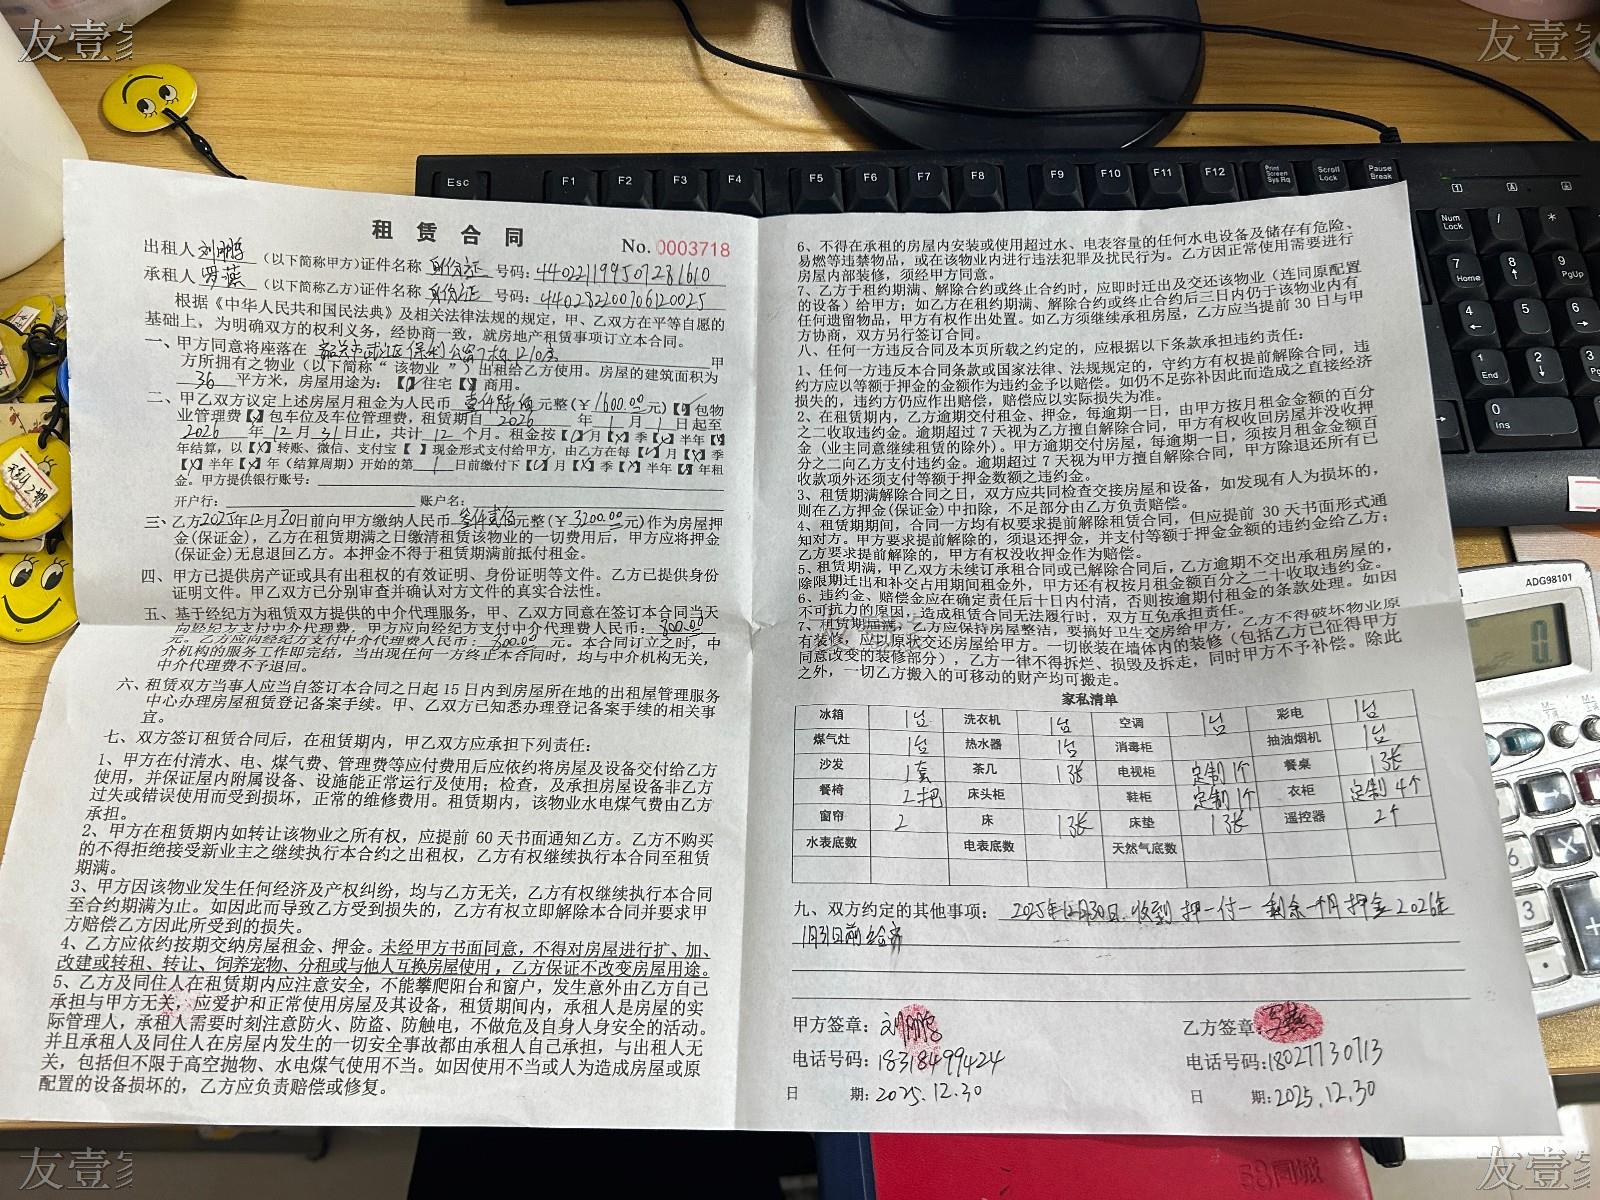 友壹家
友壹家
Esc F1 F2 F3 F4 F5 F6 F7 F8 F9 F10 F11 F12 Print Screen Sys Rq Scroll Lock Pause Break
Num Lock / *
7 Home 8 9 PgUp
4 5 6
1 End 2 3
0 Ins
ADG98101
租赁合同
No. 0003718
出租人刘鹏（以下简称甲方）证件名称 身份证 号码：440221199509281610
承租人 罗燕（以下简称乙方）证件名称 身份证 号码：440282200706120025
根据《中华人民共和国民法典》及相关法律法规的规定，甲、乙双方在平等自愿的
基础上，为明确双方的权利义务，经协商一致，就房地产租赁事项订立本合同。
一、甲方同意将座落在 韶关市武江区保利公寓7栋1210房 甲
方所拥有之物业（以下简称“该物业”）出租给乙方使用。房屋的建筑面积为
36 平方米，房屋用途为：【 】住宅【 】商用。
二、甲乙双方议定上述房屋月租金为人民币 壹仟陆佰 元整（￥1600.00元）【 】包物
业管理费【 】包车位及车位管理费，租赁期自 2026 年 1 月 1 日起至
2026 年 12 月 31 日止，共计 12 个月。租金按【 】月【X】季【X】半年【X】
年结算，以【X】转账、微信、支付宝【 】现金形式支付给甲方，由乙方在每【 】月【X】季
【X】半年【X】年（结算周期）开始的第 1 日前缴付下【 】月【X】季【X】半年【X】年租
金。甲方提供银行账号：
开户行： 账户名：
三、乙方2025年12月30日前向甲方缴纳人民币 叁仟贰佰元整（￥3200.00元）作为房屋押
金(保证金)，乙方在租赁期满之日缴清租赁该物业的一切费用后，甲方应将押金
(保证金)无息退回乙方。本押金不得于租赁期满前抵付租金。
四、甲方已提供房产证或具有出租权的有效证明、身份证明等文件。乙方已提供身份
证明文件。甲乙双方已分别审查并确认对方文件的真实合法性。
五、基于经纪方为租赁双方提供的中介代理服务，甲、乙双方同意在签订本合同当天
向经纪方支付中介代理费，甲方应向经纪方支付中介代理费人民币：800.00
元，乙方应向经纪方支付中介代理费人民币：300.00 元。本合同订立之时，中
介机构的服务工作即完结，当出现任何一方终止本合同时，均与中介机构无关，
中介代理费不予退回。
六、租赁双方当事人应当自签订本合同之日起 15 日内到房屋所在地的出租屋管理服务
中心办理房屋租赁登记备案手续。甲、乙双方已知悉办理登记备案手续的相关事
宜。
七、双方签订租赁合同后，在租赁期内，甲乙双方应承担下列责任：
1、甲方在付清水、电、煤气费、管理费等应付费用后应依约将房屋及设备交付给乙方
使用，并保证屋内附属设备、设施能正常运行及使用；检查，及承担房屋设备非乙方
过失或错误使用而受到损坏，正常的维修费用。租赁期内，该物业水电煤气费由乙方
承担。
2、甲方在租赁期内如转让该物业之所有权，应提前 60 天书面通知乙方。乙方不购买
的不得拒绝接受新业主之继续执行本合约之出租权，乙方有权继续执行本合同至租赁
期满。
3、甲方因该物业发生任何经济及产权纠纷，均与乙方无关，乙方有权继续执行本合同
至合约期满为止。如因此而导致乙方受到损失的，乙方有权立即解除本合同并要求甲
方赔偿乙方因此所受到的损失。
4、乙方应依约按期交纳房屋租金、押金。未经甲方书面同意，不得对房屋进行扩、加、
改建或转租、转让、饲养宠物、分租或与他人互换房屋使用，乙方保证不改变房屋用途。
5、乙方及同住人在租赁期内应注意安全，不能攀爬阳台和窗户，发生意外由乙方自己
承担与甲方无关，应爱护和正常使用房屋及其设备，租赁期间内，承租人是房屋的实
际管理人，承租人需要时刻注意防火、防盗、防触电，不做危及自身人身安全的活动。
并且承租人及同住人在房屋内发生的一切安全事故都由承租人自己承担，与出租人无
关，包括但不限于高空抛物、水电煤气使用不当。如因使用不当或人为造成房屋或原
配置的设备损坏的，乙方应负责赔偿或修复。
6、不得在承租的房屋内安装或使用超过水、电表容量的任何水电设备及储存有危险、
易燃等违禁物品，或在该物业内进行违法犯罪及扰民行为。乙方因正常使用需要进行
房屋内部装修，须经甲方同意。
7、乙方于租约期满、解除合约或终止合约时，应即时迁出及交还该物业（连同原配置
的设备）给甲方；如乙方在租约期满、解除合约或终止合约后三日内仍于该物业内有
任何遗留物品，甲方有权作出处置。如乙方须继续承租房屋，乙方应当提前 30 日与甲
方协商，双方另行签订合同。
八、任何一方违反合同及本页所载之约定的，应根据以下条款承担违约责任：
1、任何一方违反本合同条款或国家法律、法规规定的，守约方有权提前解除合同，违
约方应以等额于押金的金额作为违约金予以赔偿。如仍不足弥补因此而造成之直接经济
损失的，违约方仍应作出赔偿，赔偿应以实际损失为准。
2、在租赁期内，乙方逾期交付租金、押金，每逾期一日，由甲方按月租金金额的百分
之二收取违约金。逾期超过 7 天视为乙方擅自解除合同，甲方有权收回房屋并没收押
金（业主同意继续租赁的除外）。甲方逾期交付房屋，每逾期一日，须按月租金金额百
分之二向乙方支付违约金。逾期超过 7 天视为甲方擅自解除合同，甲方除退还所有已
收款项外还须支付等额于押金数额之违约金。
3、租赁期满解除合同之日，双方应共同检查交接房屋和设备，如发现有人为损坏的，
则在乙方押金(保证金)中扣除，不足部分由乙方负责赔偿。
4、租赁期期间，合同一方均有权要求提前解除租赁合同，但应提前 30 天书面形式通
知对方。甲方要求提前解除的，须退还押金，并支付等额于押金金额的违约金给乙方；
乙方要求提前解除的，甲方有权没收押金作为赔偿。
5、租赁期满，甲乙双方未续订承租合同或已解除合同后，乙方逾期不交出承租房屋的，
除限期迁出和补交占用期间租金外，甲方还有权按月租金额百分之二十收取违约金。
6、违约金、赔偿金应在确定责任后十日内付清，否则按逾期付租金的条款处理。如因
不可抗力的原因，造成租赁合同无法履行时，双方互免承担责任。
7、租赁期届满，乙方应保持房屋整洁，要搞好卫生交房给甲方，乙方不得破坏物业原
有装修，应以原状交还房屋给甲方。一切嵌装在墙体内的装修（包括乙方已征得甲方
同意改变的装修部分），乙方一律不得拆烂、损毁及拆走，同时甲方不予补偿。除此
之外，一切乙方搬入的可移动的财产均可搬走。
家私清单
冰箱 1台 洗衣机 1台 空调 1台 彩电 1台
煤气灶 1台 热水器 1台 消毒柜 抽油烟机 1台
沙发 1套 茶几 1张 电视柜 定制1个 餐桌 1张
餐椅 2把 床头柜 鞋柜 定制1个 衣柜 定制4个
窗帘 2 床 1张 床垫 1张 遥控器 2个
水表底数 电表底数 天然气底数
九、双方约定的其他事项：2025年12月30日.收到 押一付一 剩余一个月押金2026年
1月31日前给齐
甲方签章：刘鹏
电话号码：18318499424
日 期：2025.12.30
乙方签章：罗燕
电话号码：18027730713
日 期：2025.12.30
58同城
友壹家
友壹家